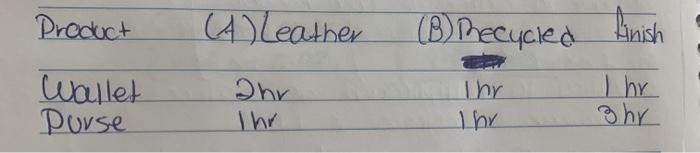 Product (A) Leather (B) Recycled finish
Wallet 2hr 1hr 1hr
Purse 1hr 1hr 3hr